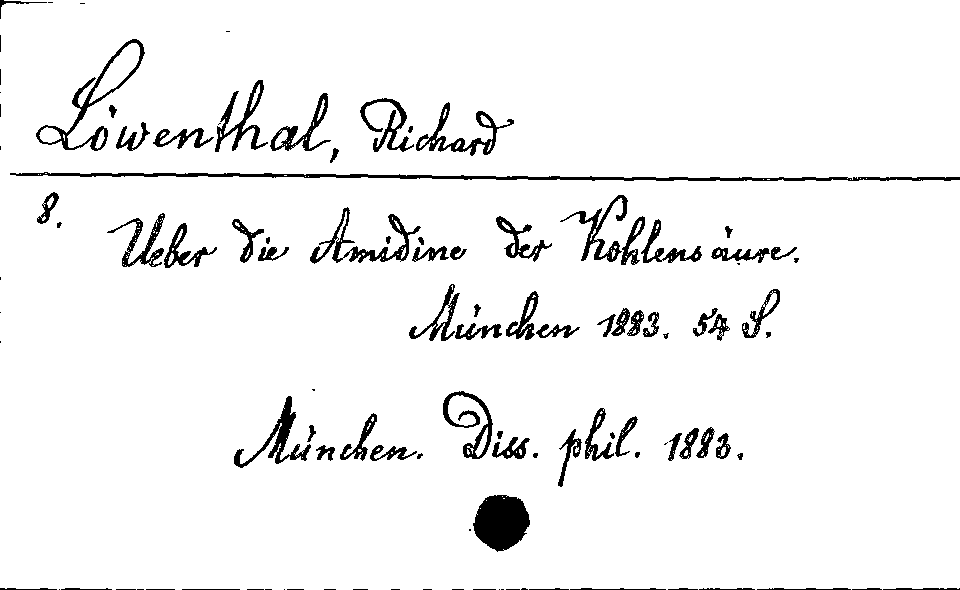 Löwenthal, Richard
8.
Ueber die Amidine der Kohlensäure.
München 1883. 54 S.
München. Diss. phil. 1883.